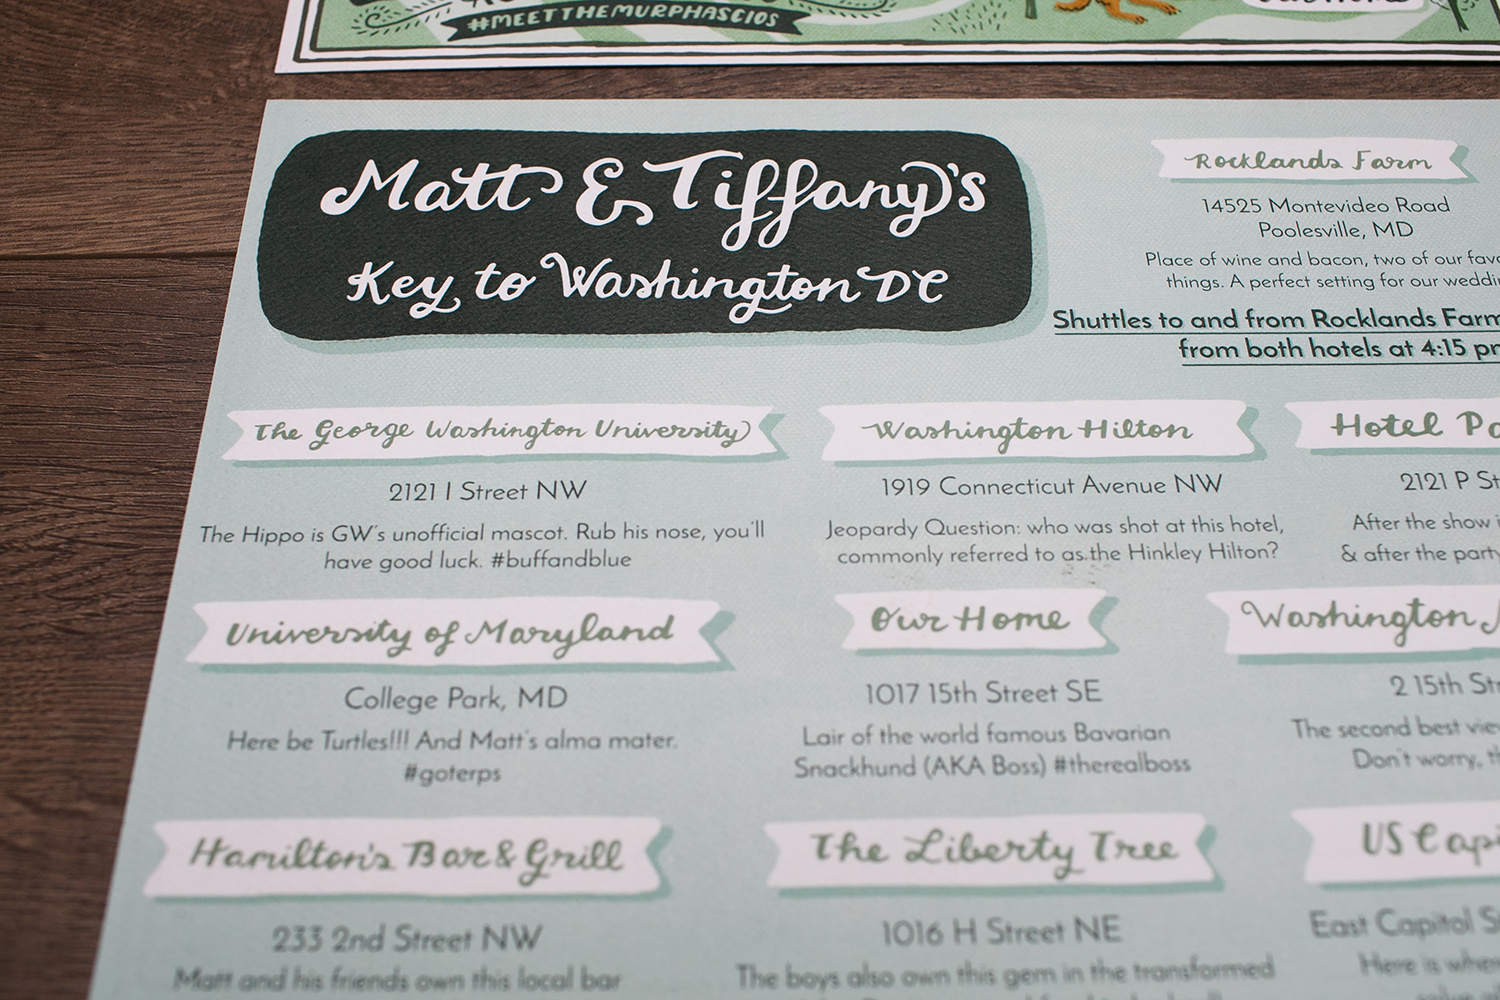 #MEETTHEMURPHASCIOS
Matt & Tiffany's
Key to Washington DC
Rocklands Farm
14525 Montevideo Road
Poolesville, MD
Place of wine and bacon, two of our
things. A perfect setting for our
Shuttles to and from Rocklands Farm
from both hotels at 4:15
The George Washington University
2121 I Street NW
The Hippo is GW's unofficial mascot. Rub his nose, you'll
have good luck. #buffandblue
Washington Hilton
1919 Connecticut Avenue NW
Jeopardy Question: who was shot at this hotel,
commonly referred to as the Hinkley Hilton?
Hotel
2121 P
After the show
& after the party
University of Maryland
College Park, MD
Here be Turtles!!! And Matt's alma mater.
#goterps
Our Home
1017 15th Street SE
Lair of the world famous Bavarian
Snackhund (AKA Boss) #therealboss
Washington
2 15th
The second best
Don't worry,
Hamilton's Bar & Grill
233 2nd Street NW
Matt and his friends own this local bar
The Liberty Tree
1016 H Street NE
The boys also own this gem in the transformed
US
East Capitol
Here is